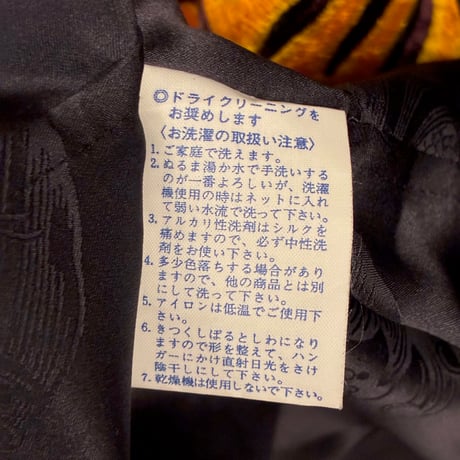 ◎ドライクリーニングを
お奨めします
〈お洗濯の取扱い注意〉
1. ご家庭で洗えます。
2. ぬるま湯か水で手洗いする
のが一番よろしいが、洗濯
機使用の時はネットに入れ
て弱い水流で洗って下さい。
3. アルカリ性洗剤はシルクを
痛めますので、必ず中性洗
剤をお使い下さい。
4. 多少色落ちする場合があり
ますので、他の商品とは別
にして洗って下さい。
5. アイロンは低温でご使用下
さい。
6. きつくしぼるとしわになり
ますので形を整えて、ハン
ガーにかけ直射日光をさけ
陰干しにして下さい。
7. 乾燥機は使用しないで下さい。